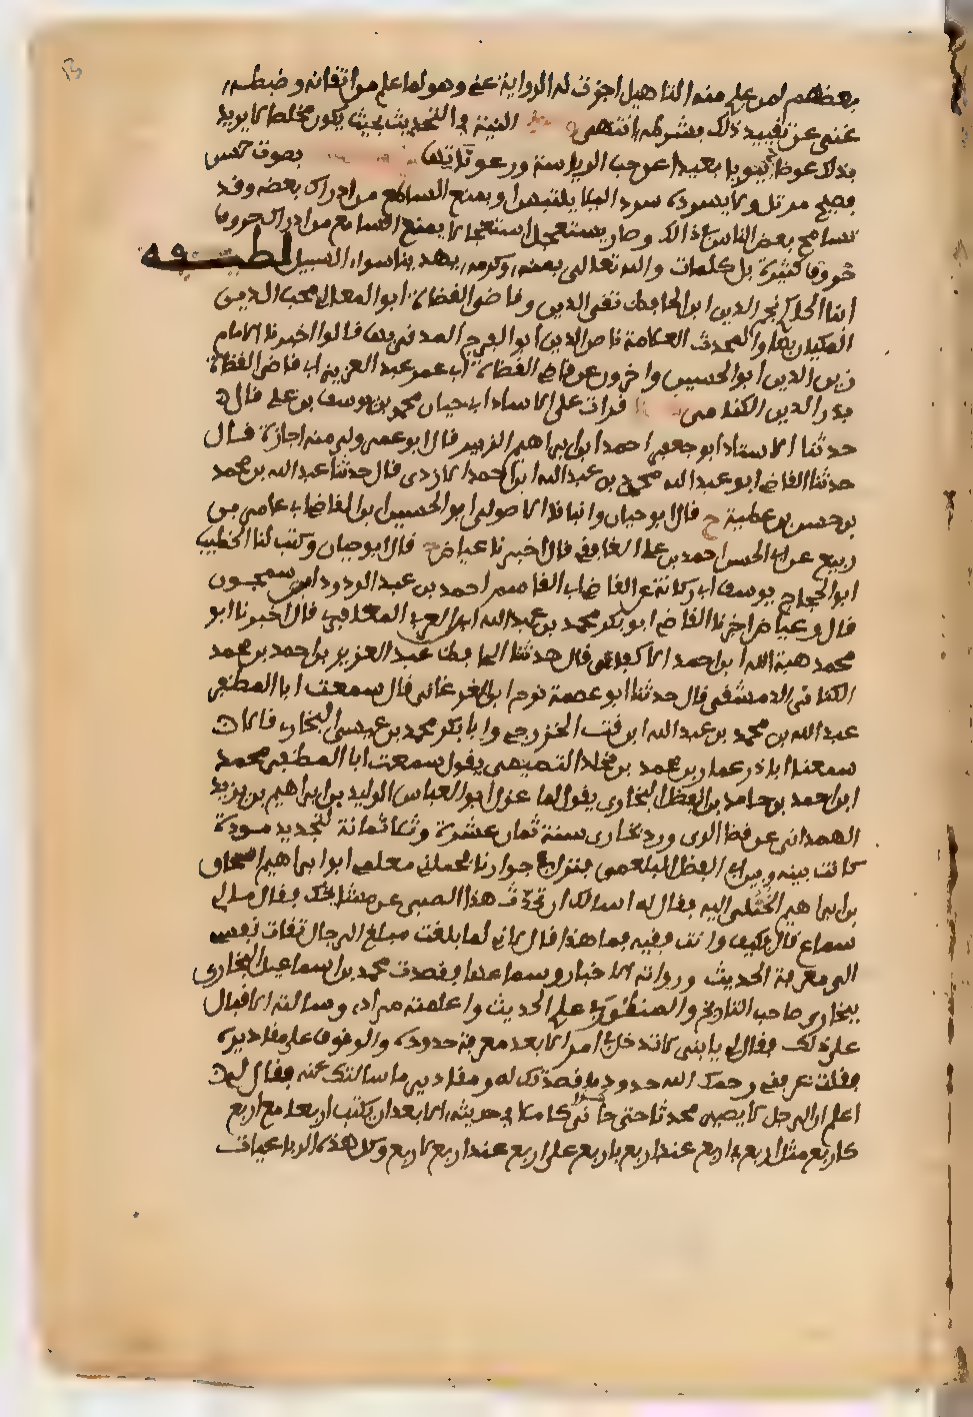 بعضهم لمن علم منه التاهيل اجزت له الرواية عني وهو لما علم من اتقانه وضبطه
غني عن تقييد ذلك بشرطه انتهى النية والتحديث بحيث يكون مخلطا لا يريد
بذلك عرضا دنيويا بعيدا عن حب الرياسة ورعوناتها بصوت حسن
فصيح مرتل ولا يسرده سردا ليلا يلتبس او يمنع السامع من ادراك بعضه وقد
تسامح بعض الناس في ذلك وصار يستعجل استعجالا يمنع السامع من ادراك حروف
كثيرة بل كلمات والله تعالى بمنه وكرمه يهدينا سواء السبيل لطيفه
انبانا نجم الدين ابن الحافظ تقي الدين وقاضي القضاة ابو المعالي محب الدين
المكيان بها والمحدث العلامة ناصر الدين ابو الفرج المدني بها قالوا اخبرنا الامام
زين الدين ابو الحسين واخرون عن قاضي القضاة ابي عمر عبد العزيز ابن قاضي القضاة
بدر الدين الكناني قرات على الاستاذ ابي حيان محمد بن يوسف بن علي قال
حدثنا الاستاذ ابو جعفر احمد ابن ابراهيم الزبير قال ابو عمر ولي منه اجازة قال
حدثنا القاضي ابو عبد الله محمد بن عبد الله ابن احمد الازدي قال حدثنا عبد الله بن محمد
بن حسن بن عطية ح قال ابو حيان وانبانا الاصولي ابو الحسين ابن القاضي ابي عامر بن
ربيع عن ابي الحسن احمد بن علي الغافقي قال اخبرنا عياض ح قال ابو حيان وكتب لنا الخطيب
ابو الحجاج يوسف ابن ركانة عن القاضي ابي القاسم احمد بن عبد الودود ابن سمجون
قال وعياض اخبرنا القاضي ابو بكر محمد بن عبد الله ابن العربي المعافري قال اخبرنا ابو
محمد هبة الله ابن احمد الاكفاني قال حدثنا الحافظ عبد العزيز بن احمد بن محمد
الكتاني الدمشقي قال حدثنا ابو عصمة نوح ابن الفرغاني قال سمعت ابا المظفر
عبد الله بن محمد بن عبد الله ابن قت الخزرجي وابا بكر محمد بن عيسى البخاري قالا
سمعنا ابا ذر عمار بن محمد بن مخلد التميمي يقول سمعت ابا المظفر محمد
ابن احمد بن حامد بن الفضل البخاري يقول لما عزل ابو العباس الوليد بن ابراهيم بن يزيد
الهمداني عن قضا الري ورد بخارى سنة ثمان عشرة وثلاثمائة لتجديد مودة
كانت بينه وبين ابي الفضل البلعمي فنزل في جوارنا فحملني معلمي ابو ابراهيم اسحاق
بن ابراهيم الختلي اليه فقال له اسالك ان تحدث هذا الصبي عن مشايخك فقال مالي
سماع قال فكيف وانت فقيه فما هذا قال لاني لما بلغت مبلغ الرجال تاقت نفسي
الى معرفة الحديث ورواية الاخبار وسماعها فقصدت محمد بن اسماعيل البخاري
ببخارى صاحب التاريخ والمنظور في علم الحديث واعلمته مرادي وسالته الاقبال
على ذلك فقال لي يا بني لا تدخل في امر الا بعد معرفة حدوده والوقوف على مقاديره
فقلت عرفني رحمك الله حدود ما قصدتك له ومقادير ما سالتك عنه فقال لي
اعلم ان الرجل لا يصير محدثا كاملا في حديثه الا بعد ان يكتب اربعا مع اربع
كاربع مثل اربع في اربع عند اربع باربع على اربع عند اربع لاربع وكل هذه الرباعيات